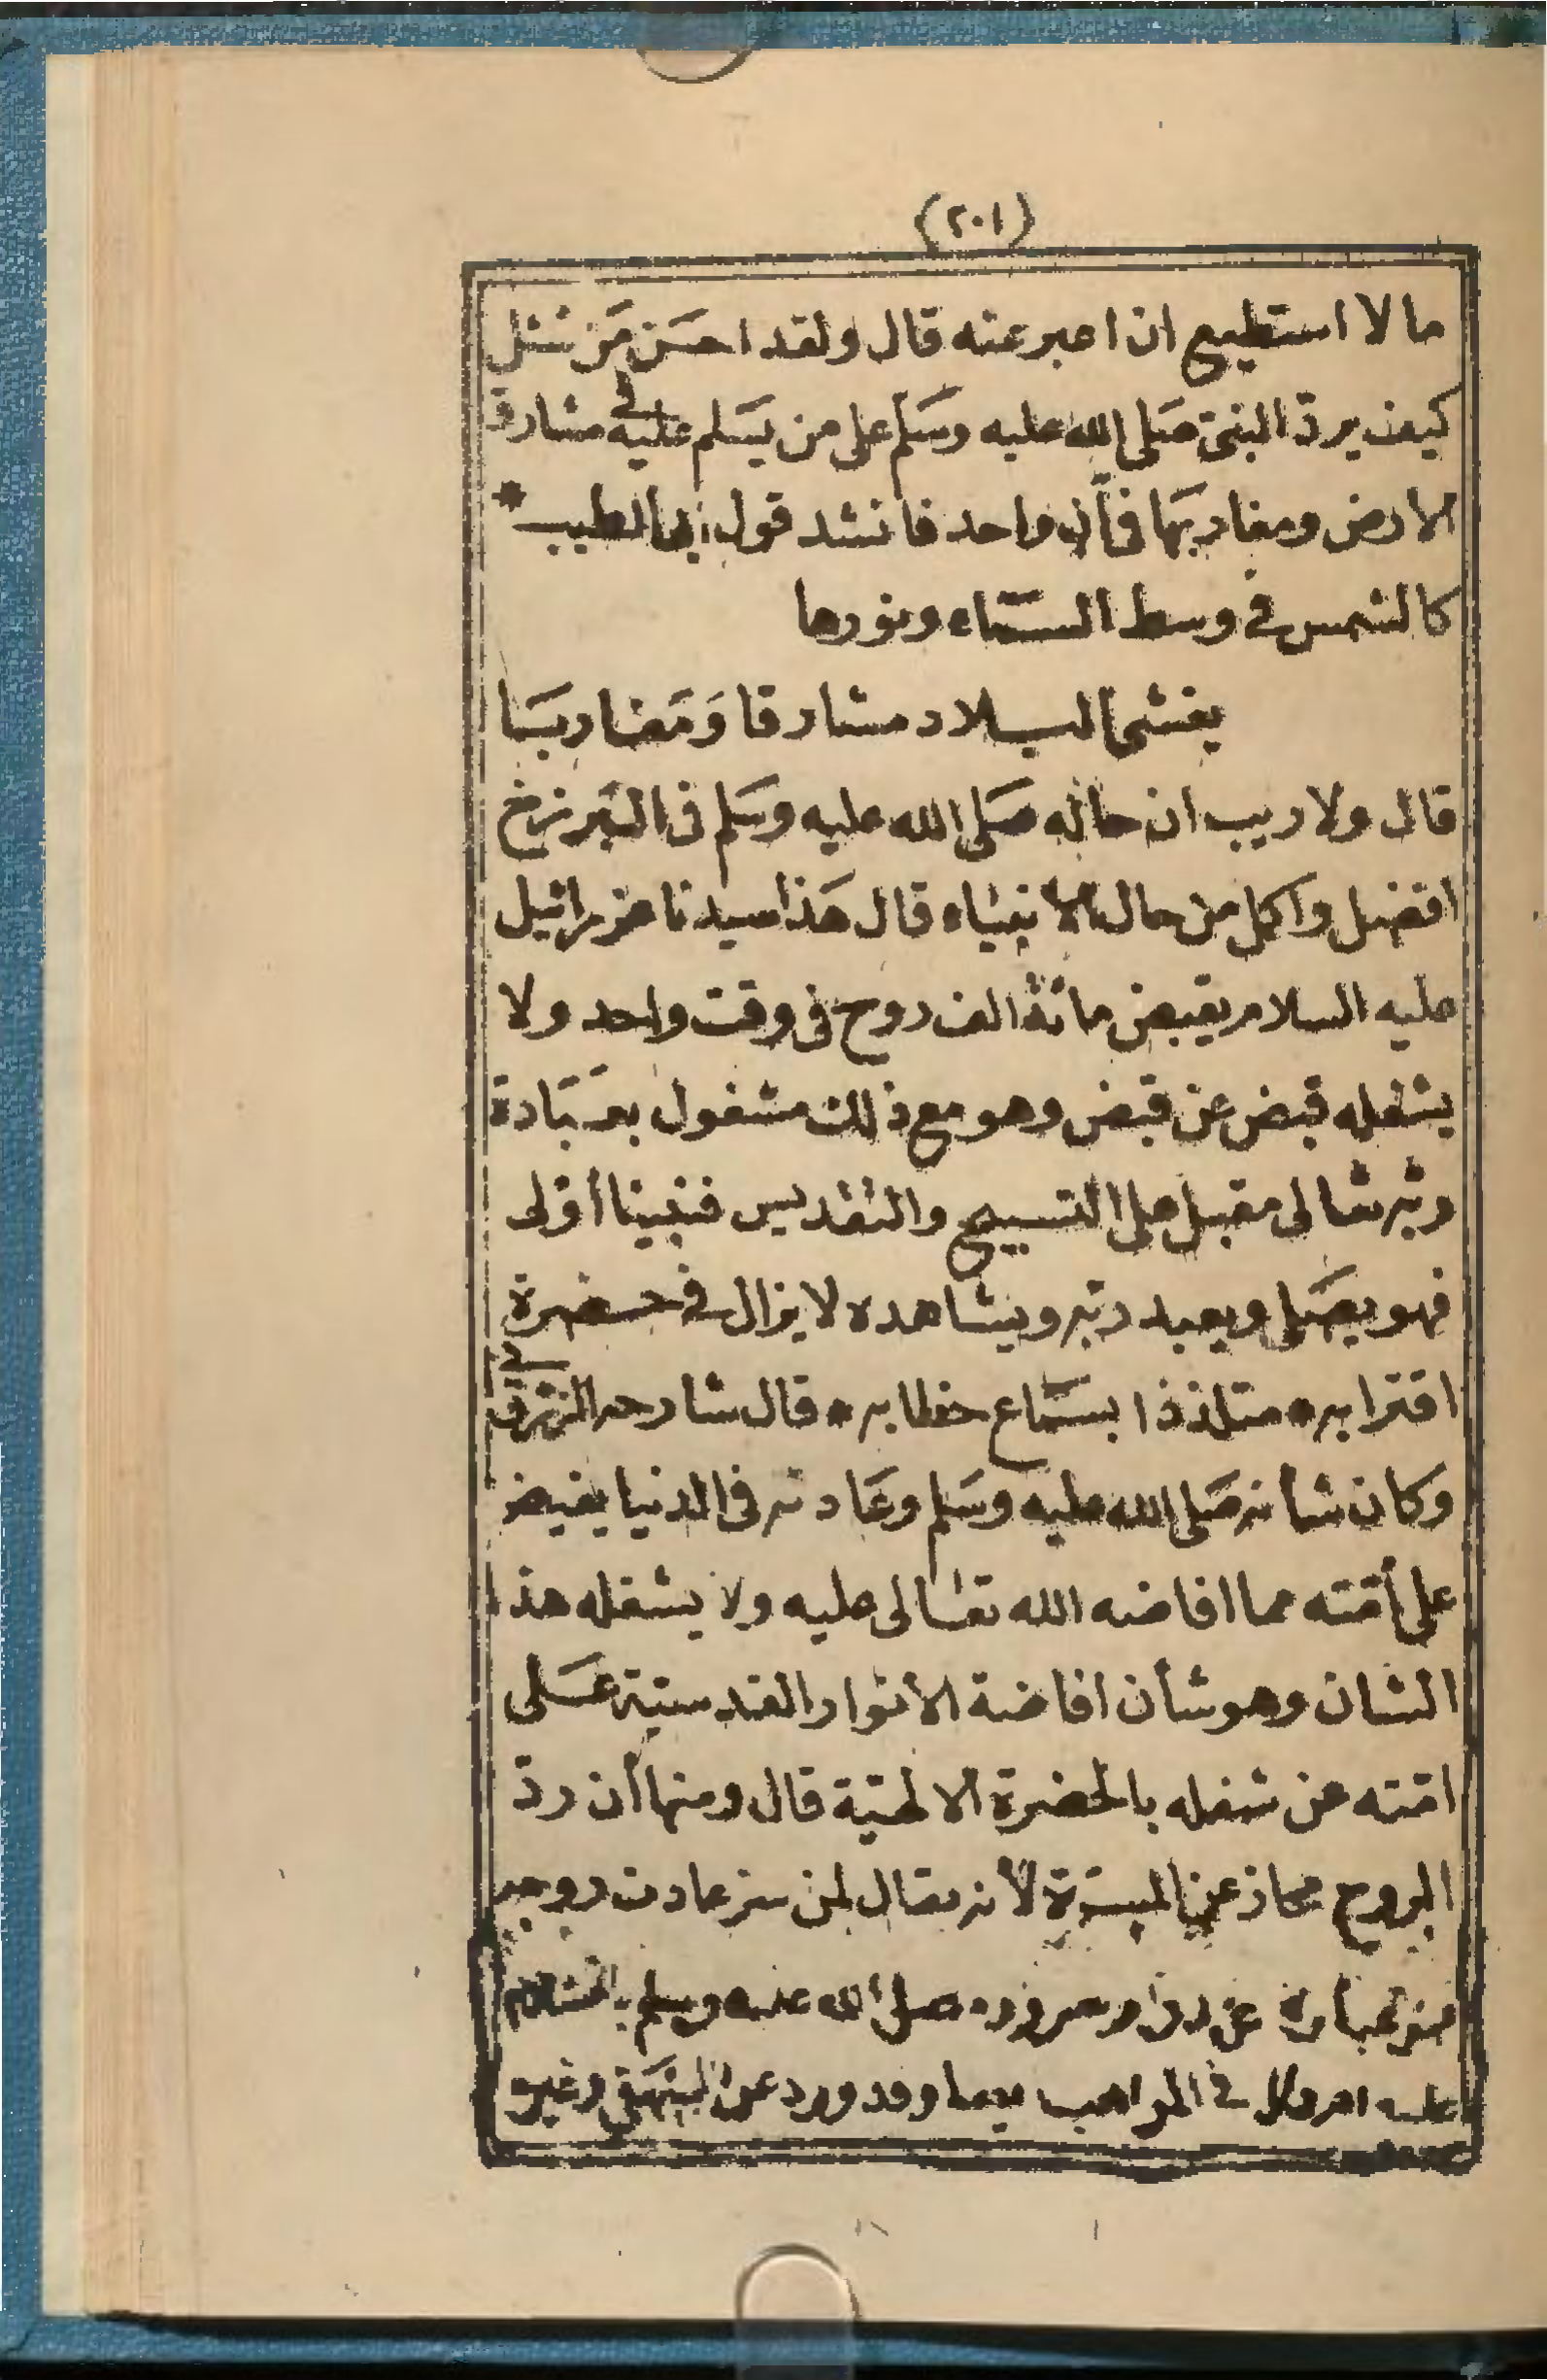 (٢٠١)
ما لا استطيع ان اعبر عنه قال ولقد احسَن مَن سُئل
كيف يردّ النبيّ صَلى الله عليه وسَلّم على من يسَلم عليه في مشارق
الارض ومغاربهَا في آن واحد فانشد قول ابي الطيب *
كالشمس في وسط السَّمَاء ونورها
يغشى البلاد مشارقا وَمَغاربَا
قال ولا ريب ان حاله صَلى الله عليه وسَلم في البَرزخ
افضل واكمل من حال الانبيَاء قال هَذا سيدنا عزرائيل
عليه السلام يقبض مائة الف روح في وقت واحد ولا
يشغله قبض عن قبض وهو مع ذلك مشغول بعبَادة
ربّه تعالى مقبل على التسبيح والتقديس فنبينا أوْلى
فهو يصَلي ويعبد ربّه ويشاهده لا يزال في حضرة
اقترابه * متلذذا بسَمَاع خطابه * قال شارحه الزرقاني
وكان شأنه صَلى الله عليه وسَلم وعَادته في الدنيا يفيض
على أمّته مما افاضه الله تعَالى عليه ولا يشغله هذا
الشان وهو شأن افاضة الانوار القدسيّة عَلى
امّته عن شغله بالحضرة الالهيّة قال ومنها أن ردّ
الروح مجاز عن المسرّة لأنه يقال لمن سر عادت روحه
فهو عبارة عن دوام سروره صلى الله عليه وسلم بالسَّلام
عليه اهـ وقال في المواهب وقد ورد عن البيهَقي وغيره